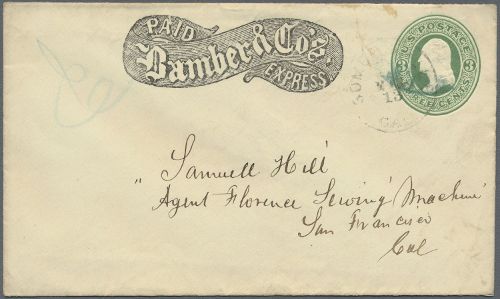 PAID
Bamber & Co's
EXPRESS
U.S. POSTAGE
3 3
THREE CENTS
13
CAL
Samuell Hill
"Agent Florence Sewing Machine"
San Francisco
Cal